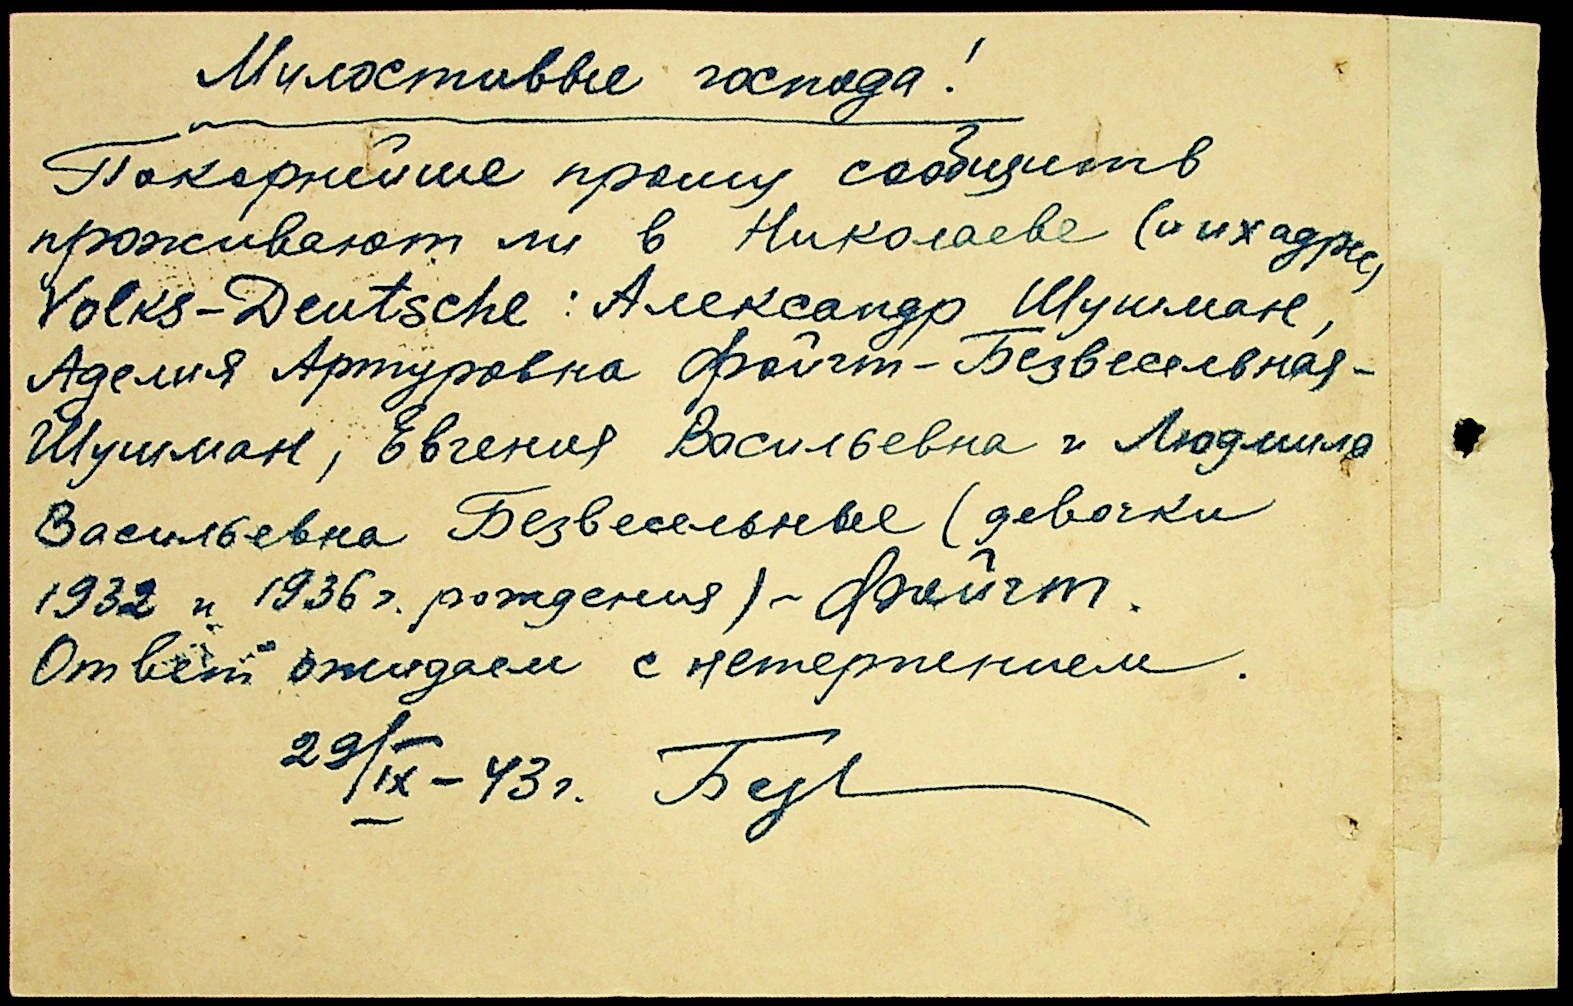 Милостивые господа!
Покорнейше прошу сообщить
проживают ли в Николаеве (и их адрес)
Volks-Deutsche: Александр Шушман,
Аделия Артуровна Фойгт-Безвесельная-
Шушман, Евгения Васильевна и Людмила
Васильевна Безвесельные (девочки
1932 и 1936 г. рождения)-Фойгт.
Ответ ожидаем с нетерпением.
29/IX-43 г. Безв